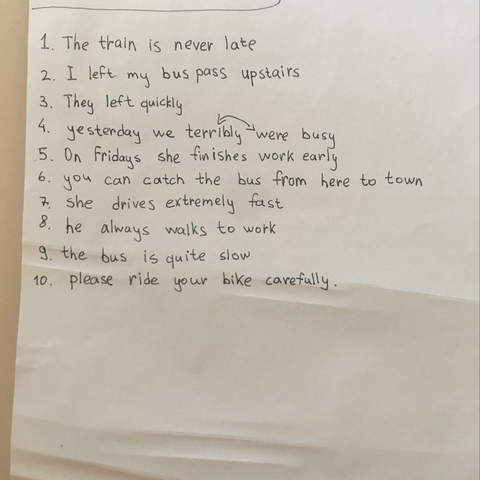 1. The train is never late
2. I left my bus pass upstairs
3. They left quickly
4. yesterday we terribly were busy
5. On Fridays she finishes work early
6. you can catch the bus from here to town
7. she drives extremely fast
8. he always walks to work
9. the bus is quite slow
10. please ride your bike carefully.